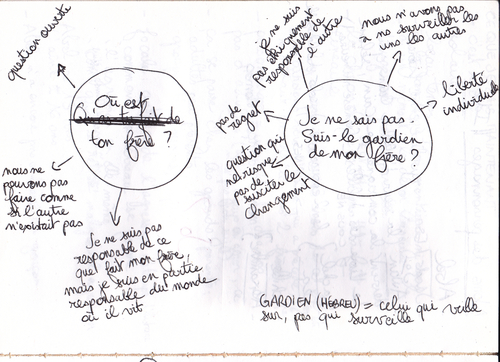 question ouverte
Où est
ton frère ?
nous ne
pouvons pas
faire comme
si l'autre
n'existait pas
Je ne suis pas
responsable de ce
que fait mon frère,
mais je suis en partie
responsable du monde
où il vit
Je ne suis
pas éthiquement
responsable de
l'autre
nous n'avons pas
à nous surveiller les
uns les autres
liberté
individuelle
pas de
regret
question qui
ne risque
pas de
susciter le
changement
Je ne sais pas.
Suis-je gardien
de mon frère ?
GARDIEN (HÉBREU) = celui qui veille
sur, pas qui surveille